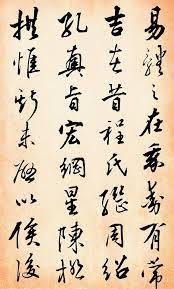 易體之在我動有常
吉在昔程氏繼周紹
孔奧旨宏綱星陳極
拱惟斯未啟以俟後